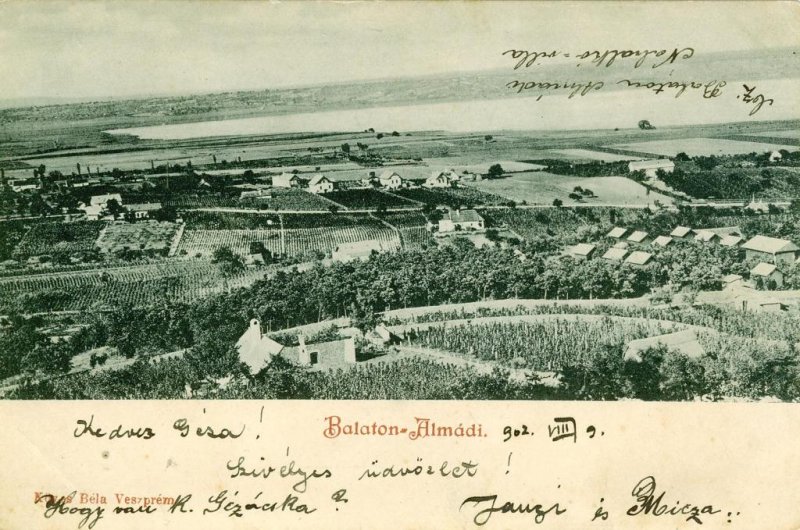 Balaton Almádi
villa
Kedves Géza!
Balaton-Almádi.
902. VIII 9.
Szivélyes üdvözlet!
Béla Veszprém
Hogy van K. Gézácska?
Janzi és Micza..